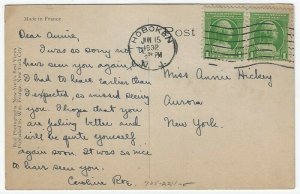 Made in France
Dear Annie,
I was so sorry not to
have seen you again, but
I had to leave earlier than
I expected, so missed seeing
you. I hope that you
are feeling better and
will be quite yourself
again soon. It was so nice
to have seen you.
Caroline
Post
HOBOKEN
JUN 15
1932
PM
N.J.
Miss Annie Hickey
Aurora
New York.